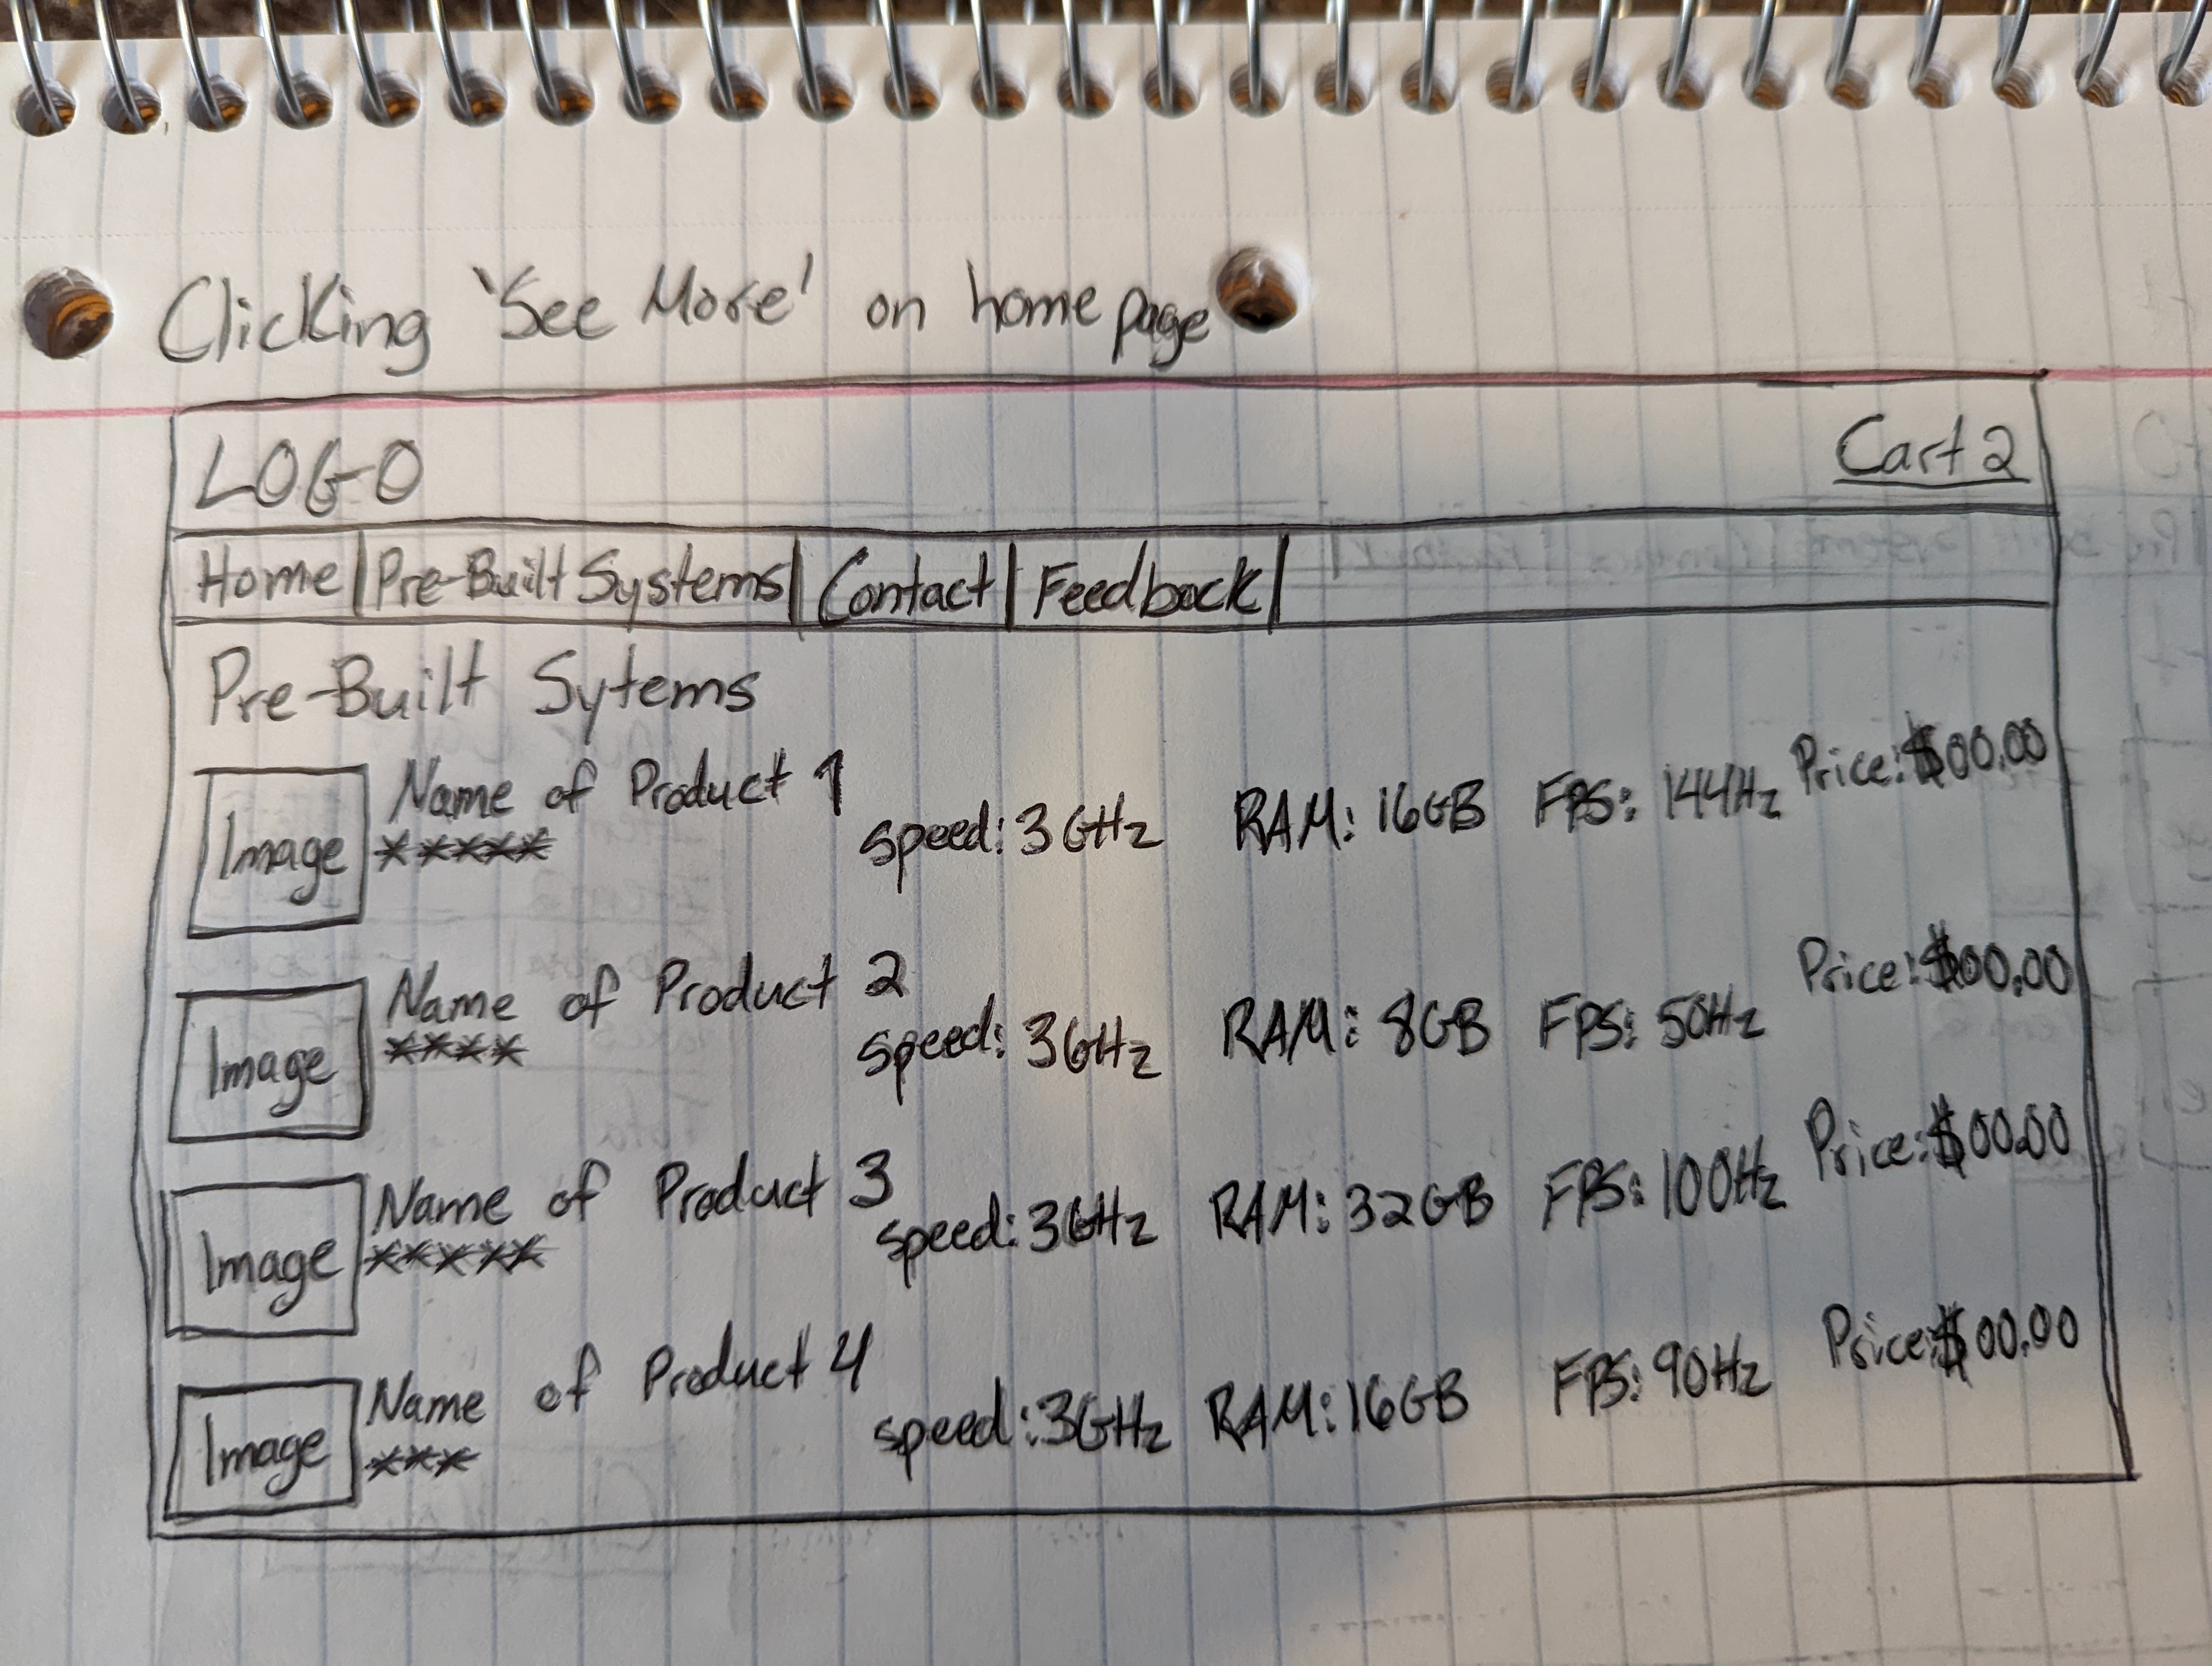 Clicking 'See More' on home page
LOGO
Cart 2
Home | Pre-Built Systems | Contact | Feedback |
Pre-Built Sytems
Image
Name of Product 1
*****
speed: 3GHz
RAM: 16GB
FPS: 144Hz
Price: $00.00
Image
Name of Product 2
****
speed: 3GHz
RAM: 8GB
FPS: 50Hz
Price: $00.00
Image
Name of Product 3
*****
speed: 3GHz
RAM: 32GB
FPS: 100Hz
Price: $00.00
Image
Name of Product 4
***
speed: 3GHz
RAM: 16GB
FPS: 90Hz
Price: $00.00